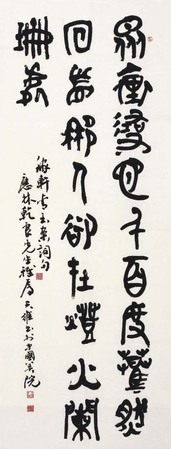 眾裏尋他千百度驀然
回首那人卻在燈火闌
珊處
稼軒青玉案詞句
應林乾良先生雅屬 書於中國美院